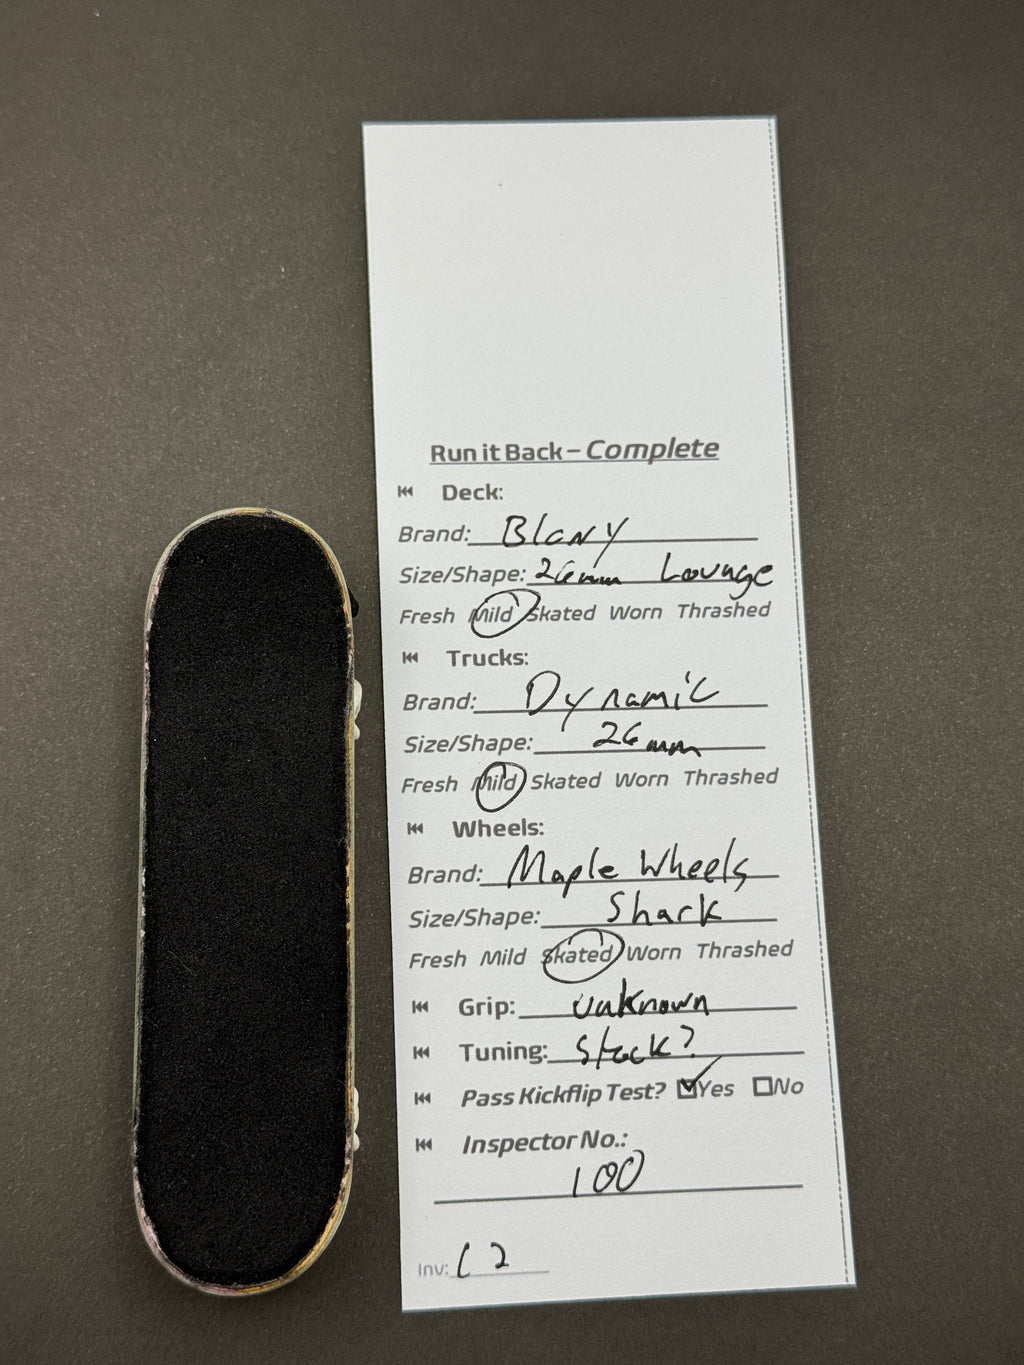 Run it Back – Complete
Deck:
Brand: Blcny
Size/Shape: 26mm Lounge
Fresh Mild Skated Worn Thrashed
Trucks:
Brand: Dynamic
Size/Shape: 26mm
Fresh Mild Skated Worn Thrashed
Wheels:
Brand: Maple Wheels
Size/Shape: Shark
Fresh Mild Skated Worn Thrashed
Grip: unknown
Tuning: Stock?
Pass Kickflip Test? Yes No
Inspector No.:
100
Inv: C2